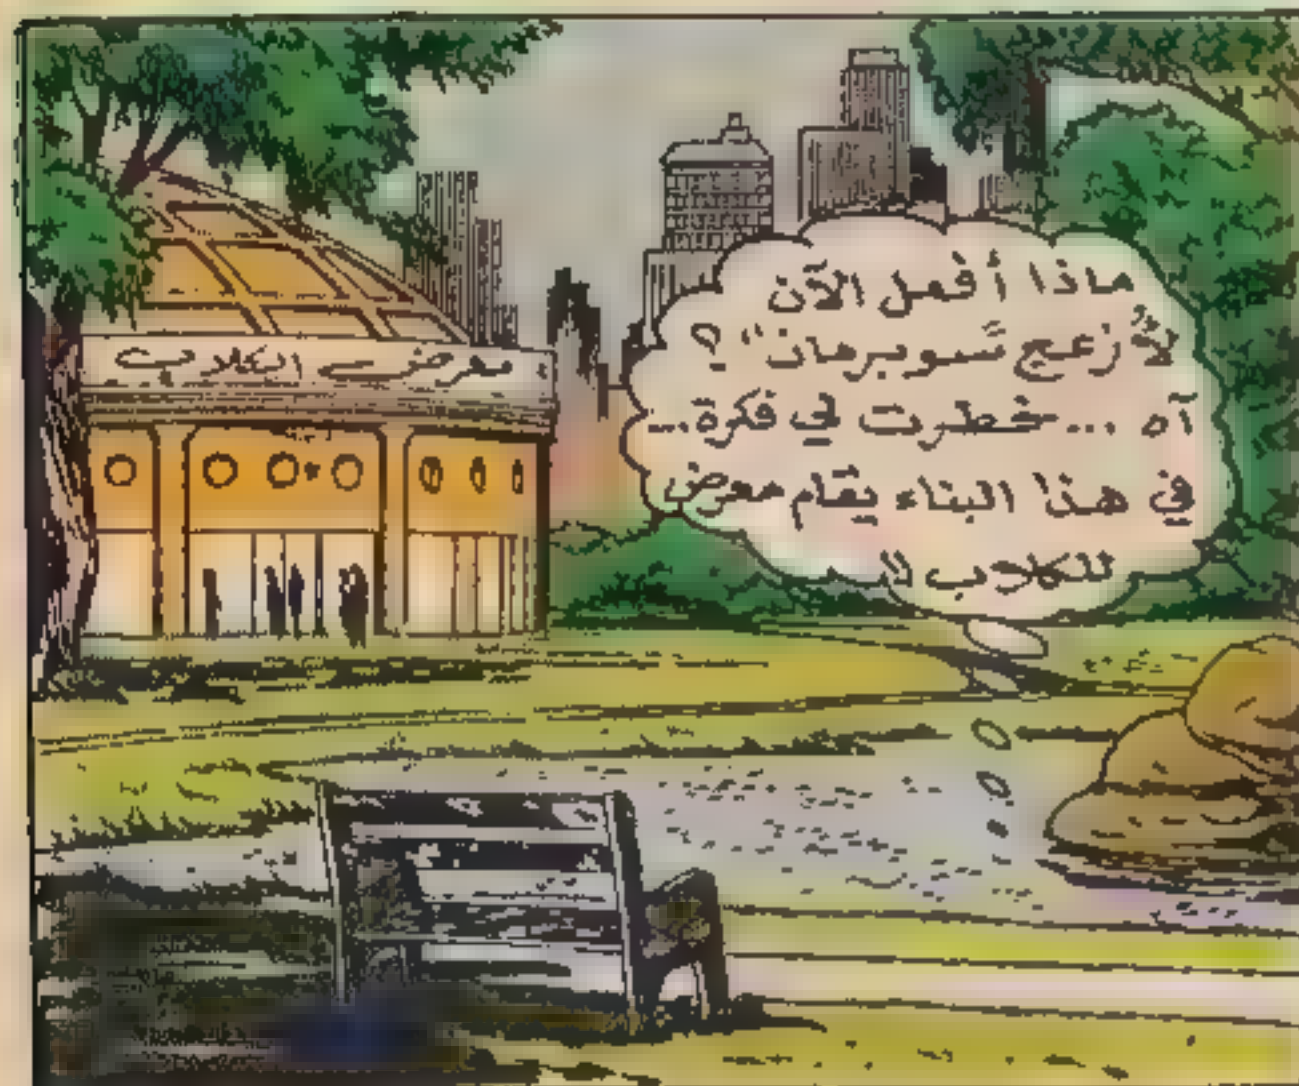 معرض الكلاب
ماذا أفعل الآن
لأُزعج "سوبرمان" ؟
آه ... خطرت لي فكرة...
في هذا البناء يقام معرض
للكلاب !!